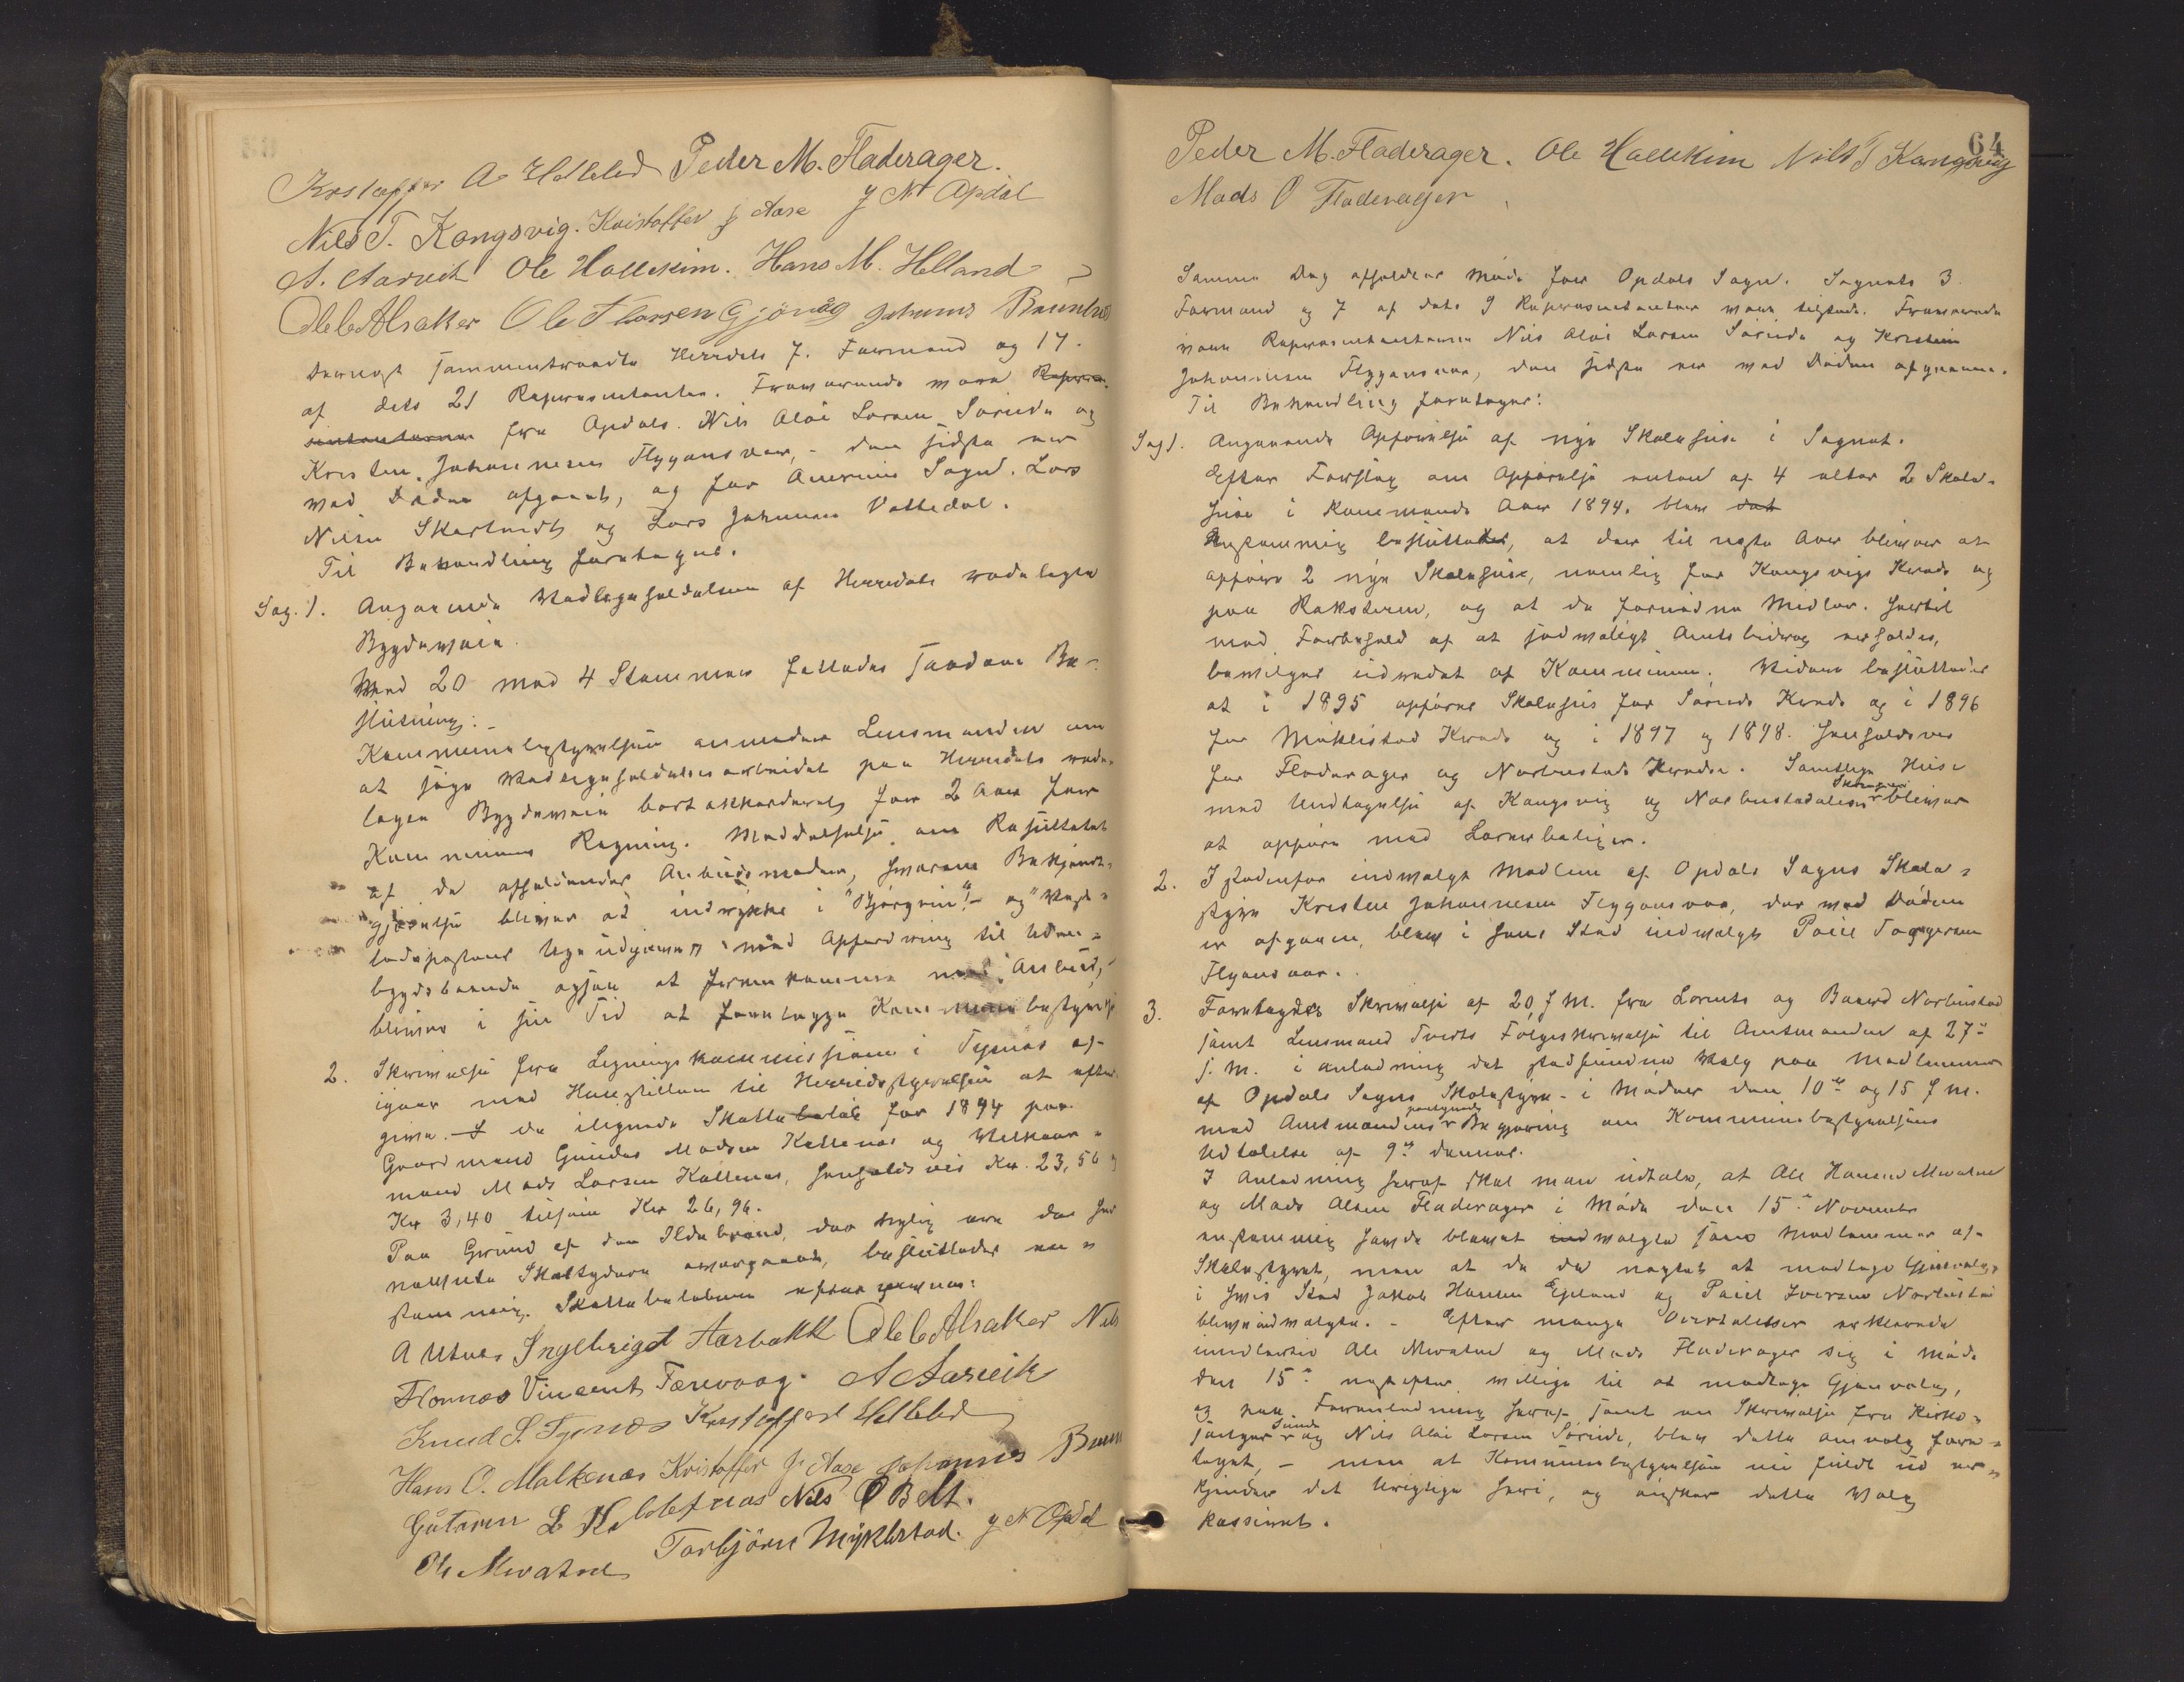 Kristoffer A Helleled Peder M. Fladerager.
Nils T. Kongsvig. Kristoffer J. Aase J N Opdal
A. Aarvik Ole Hollekim. Hans M. Helland
Ole C Alsaker Ole Thorsen Gjönåg Johannes
Dernæst sammentraadte Herredets 7 Formænd og 17
af dets 21 Repræsentanter. Fraværende vare Repræ-
sentanterne fra Opdals. Nils Aloi Larsen Sörside og
Kristen Johannesen Flygansvær, - den sidste er
ved Døden afgaaet, og for Aenæs Sogn. Lars
Nilsen Skartveit og Lars Johannesen Vattedal.
Til Behandling foretoges.
Sag. 1. Angaaende Vedligeholdelsen af Herredets rodelagte
Bygdeveie.
Med 20 mod 4 Stemmer fattedes saadan Be-
slutning:
Kommunebestyrelsen anmoder Lensmanden om
at søge Vedligeholdelsesarbeidet paa Herredets rode-
lagte Bygdeveie bortakkorderet for 2 Aar for
Kommunens Regning. Meddelelse om Resultatet
af de afholdendes Anbudsmøder, hvorom Bekjendt-
gjørelse bliver at indrykke i "Bjørgvin" og "Vest-
landspostens Ugeudgave" med Opfordring til Uden-
bygdsboende ogsaa at fremkomme med Anbud,
bliver i sin Tid at forelægge Kommunebestyrelse
2. Skrivelse fra Ligningskommissionen i Tysnæs af
igaar med Henstillen til Herredsstyrelsen at efter-
give. I de ilignede Skattebeløb for 1894 paa
Gaardmand Gunder Madsen Kallenæs og Velkaar-
mand Mads Larsen Kallenæs, henholdsvis Kr. 23,56 og
Kr 3,40 tilsam Kr 26,96.
Paa Grund af den Ildebrand, der nylig er de her
nævnte Skatydere overgaaet, besluttedes en-
stemmig Skattebeløbene eftergivne:
A Utnes Ingebrigt Aarbakk Ole C Alsaker Nils
Vincent Færevaag. A Aarvik
Knud S. Tysnæs Kristoffer A Helleled
Hans O. Malkenæs Kristoffer J. Aase Johannes
Guttorm L Kallefnæs Nils O Belt.
Ole Mevatne Torbjörn Myklestad. J N Opdal
64
Peder M. Fladerager. Ole Hollekim Nils T Kongsvig
Mads O Fladerager
Samme Dag afholdtes Møde for Opdals Sogn. Sognets 3
Formænd og 7 af dets 9 Repræsentanter vare tilstede. Fraværende
vare Repræsentanterne Nils Aloi Larsen Sörside og Kristen
Johannesen Flygansvær, den sidste er ved Døden afgaaet.
Til Behandling foretoges:
Sag 1. Angaaende Opførelse af nye Skolehuse i Sognet.
Efter Forslag om Opførelse enten af 4 eller 2 Skole-
huse i kommende Aar 1894. blev det
enstemmig besluttet, at der til næste Aar bliver at
opføre 2 nye Skolehuse, nemlig for Kongsvigs Kreds og
paa Raksteren, og at de fornødne Midler hertil
med Forbehold af at sedvanligt Amtsbidrag erholdes,
bevilges udredet af Kommunen. Videre besluttedes
at i 1895 opføres Skolehus for Sørside Kreds og i 1896
for Miklestad Kreds og i 1897 og 1898 henholdsvis
for Fladerager og Norbustads Kredse. Samtlige Huse
med Undtagelse af Kongsvig og Norbustaddalens Skolehuse bliver
at opføre med Lærerbolig.
2. Istedenfor indvalgt Medlem af Opdals Sogns Skole-
styre Kristen Johannesen Flygansvær, der ved Døden
er afgaaen, blev i hans Sted indvalgt Poul Torgersen
Flygansvær.
3. Foretoges Skrivelse af 20 f M. fra Lorents og Baard Norbustad
samt Lensmand Tveits Følgeskrivelse til Amtmanden af 27de
s. M. i anledning det stedfundne Valg paa Medlemmer
af Opdals Sogns Skolestyre - i Møder den 10de og 15 f M.
med Amtmandens paategnede Begjæring om Kommunebestyrelsens
Udtalelse af 9de dennes.
I Anledning heraf skal man udtale, at Ole Hansen Mevatne
og Mads Olsen Fladerager i Møde den 15de November
enstemmig havde blevet indvalgte som Medlemmer af
Skolestyret, men at de da nægtet at modtage Gjenvalg,
i hvis Sted Jakob Hansen Epland og Poul Iversen Norbustad
blev indvalgte. - Efter mange Overtalelser erklærede
imidlertid Ole Mevatne og Mads Fladerager sig i Møde
den 15de næstefter villige til at modtage Gjenvalg,
og paa Foranledning heraf samt en Skrivelse fra Kirke-
sanger Sunde og Nils Aloi Larsen Sörside, blev dette Omvalg fore-
taget, - men at Kommunebestyrelsen nu fuldt ud er-
kjender det Urigtige heri, og ønsker dette Valg
kasseret.